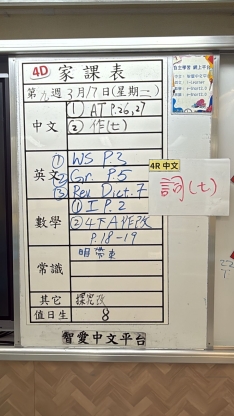 4D 家課表
第九週3月17日(星期二)
中文
① AT P.26,27
② 作(七)
英文
① WS P.3
② Gr. P.5
③ Rev. Dict. 7
4R 中文
詞(七)
數學
① I P.2
② 4下A作改
P.18-19
常識
明帶書
其它
值日生
8
智愛中文平台
自主學習 網上平台